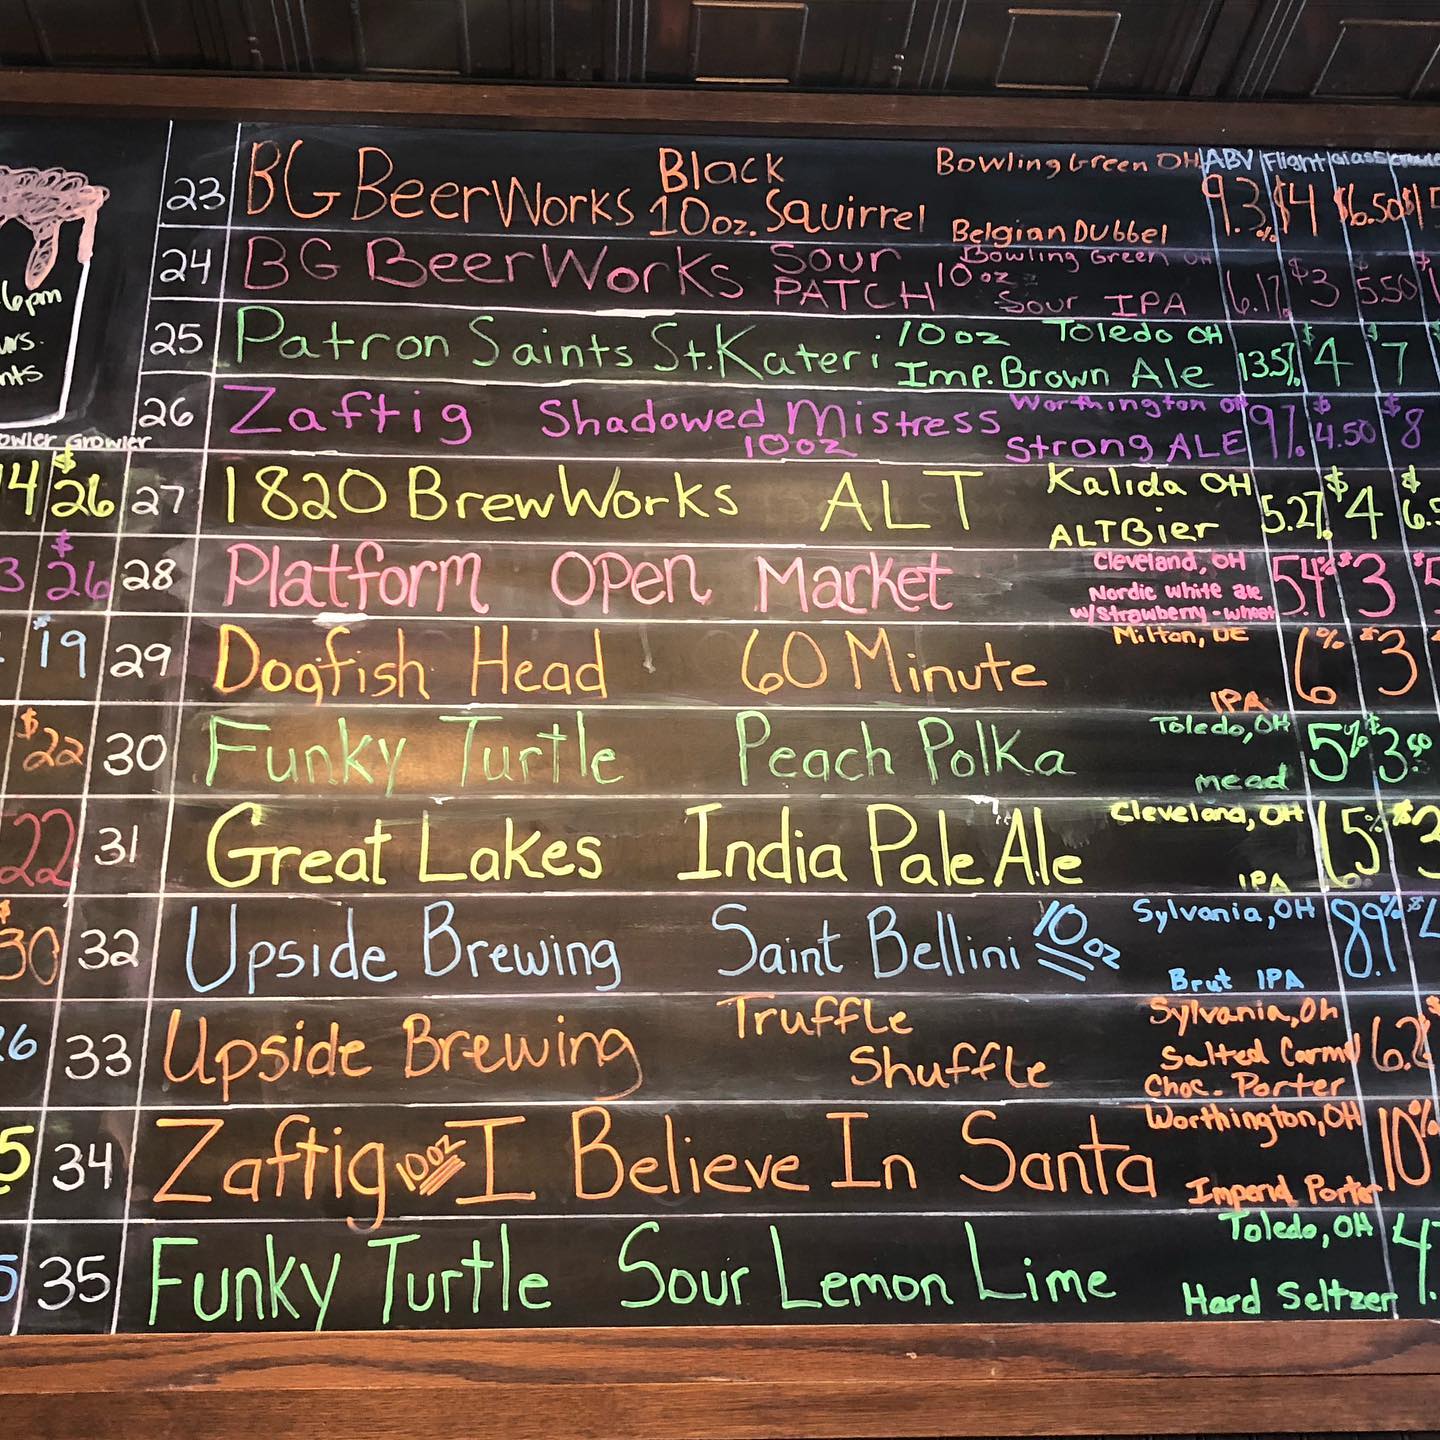 ABV Flight Glass
23 BG BeerWorks Black Squirrel 10oz. Bowling Green OH Belgian Dubbel 9.3% $4 $6.50
24 BG BeerWorks Sour PATCH 10oz Bowling Green OH Sour IPA 6.1% $3 $5.50
25 Patron Saints St. Kateri 10oz Toledo OH Imp. Brown Ale 13.5% $4 $7
26 Zaftig Shadowed Mistress 10oz Worthington OH Strong ALE 9% $4.50 $8
Growler
$26 27 1820 BrewWorks ALT Kalida OH ALTBier 5.2% $4
$26 28 Platform Open Market Cleveland, OH Nordic white ale w/strawberry-wheat 5.4% $3
$19 29 Dogfish Head 60 Minute Milton, DE IPA 6% $3
$22 30 Funky Turtle Peach Polka Toledo, OH mead 5% $3.50
22 31 Great Lakes India Pale Ale Cleveland, OH IPA
$30 32 Upside Brewing Saint Bellini 10oz Sylvania, OH Brut IPA
33 Upside Brewing Truffle Shuffle Sylvania, Oh Salted Carml Choc. Porter
34 Zaftig 10oz I Believe In Santa Worthington, OH Imperial Porter 10%
35 Funky Turtle Sour Lemon Lime Toledo, OH Hard Seltzer
6pm